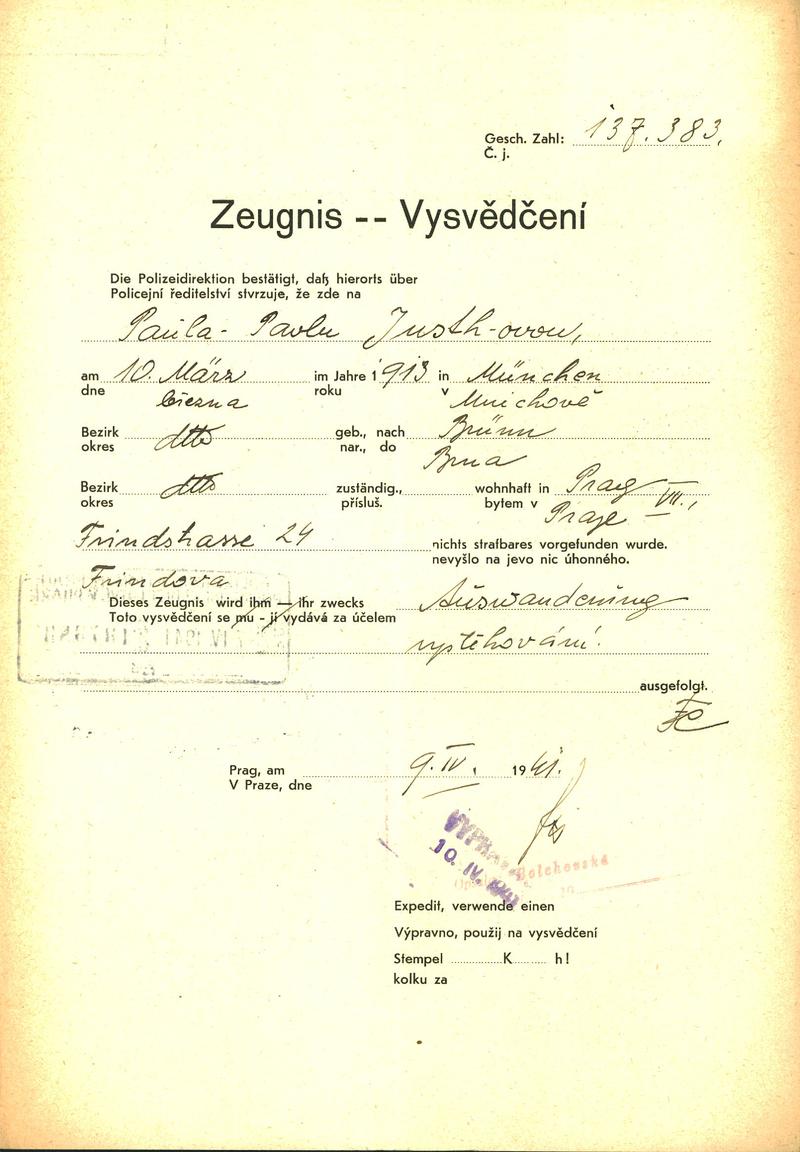 Gesch. Zahl: 137.383.
Č. j.
Zeugnis -- Vysvědčení
Die Polizeidirektion bestätigt, daß hierorts über
Policejní ředitelství stvrzuje, že zde na
Paula - Pavlu Justh-ovou,
am 10. März im Jahre 1913 in München
dne března roku v Mnichově
Bezirk dtto geb., nach Brünn
okres nar., do Brna
Bezirk dtto zuständig., wohnhaft in Prag VII.,
okres přísluš. bytem v Praze
Frindstrasse 24 nichts strafbares vorgefunden wurde.
nevyšlo na jevo nic úhonného.
Frindova
Dieses Zeugnis wird ihm — ihr zwecks Auswanderung
Toto vysvědčení se mu - jí vydává za účelem
vystěhování.
ausgefolgt.
Prag, am 9. IV. 1941.
V Praze, dne
10. IV. 1941
Expedit, verwende einen
Výpravno, použij na vysvědčení
Stempel K h!
kolku za